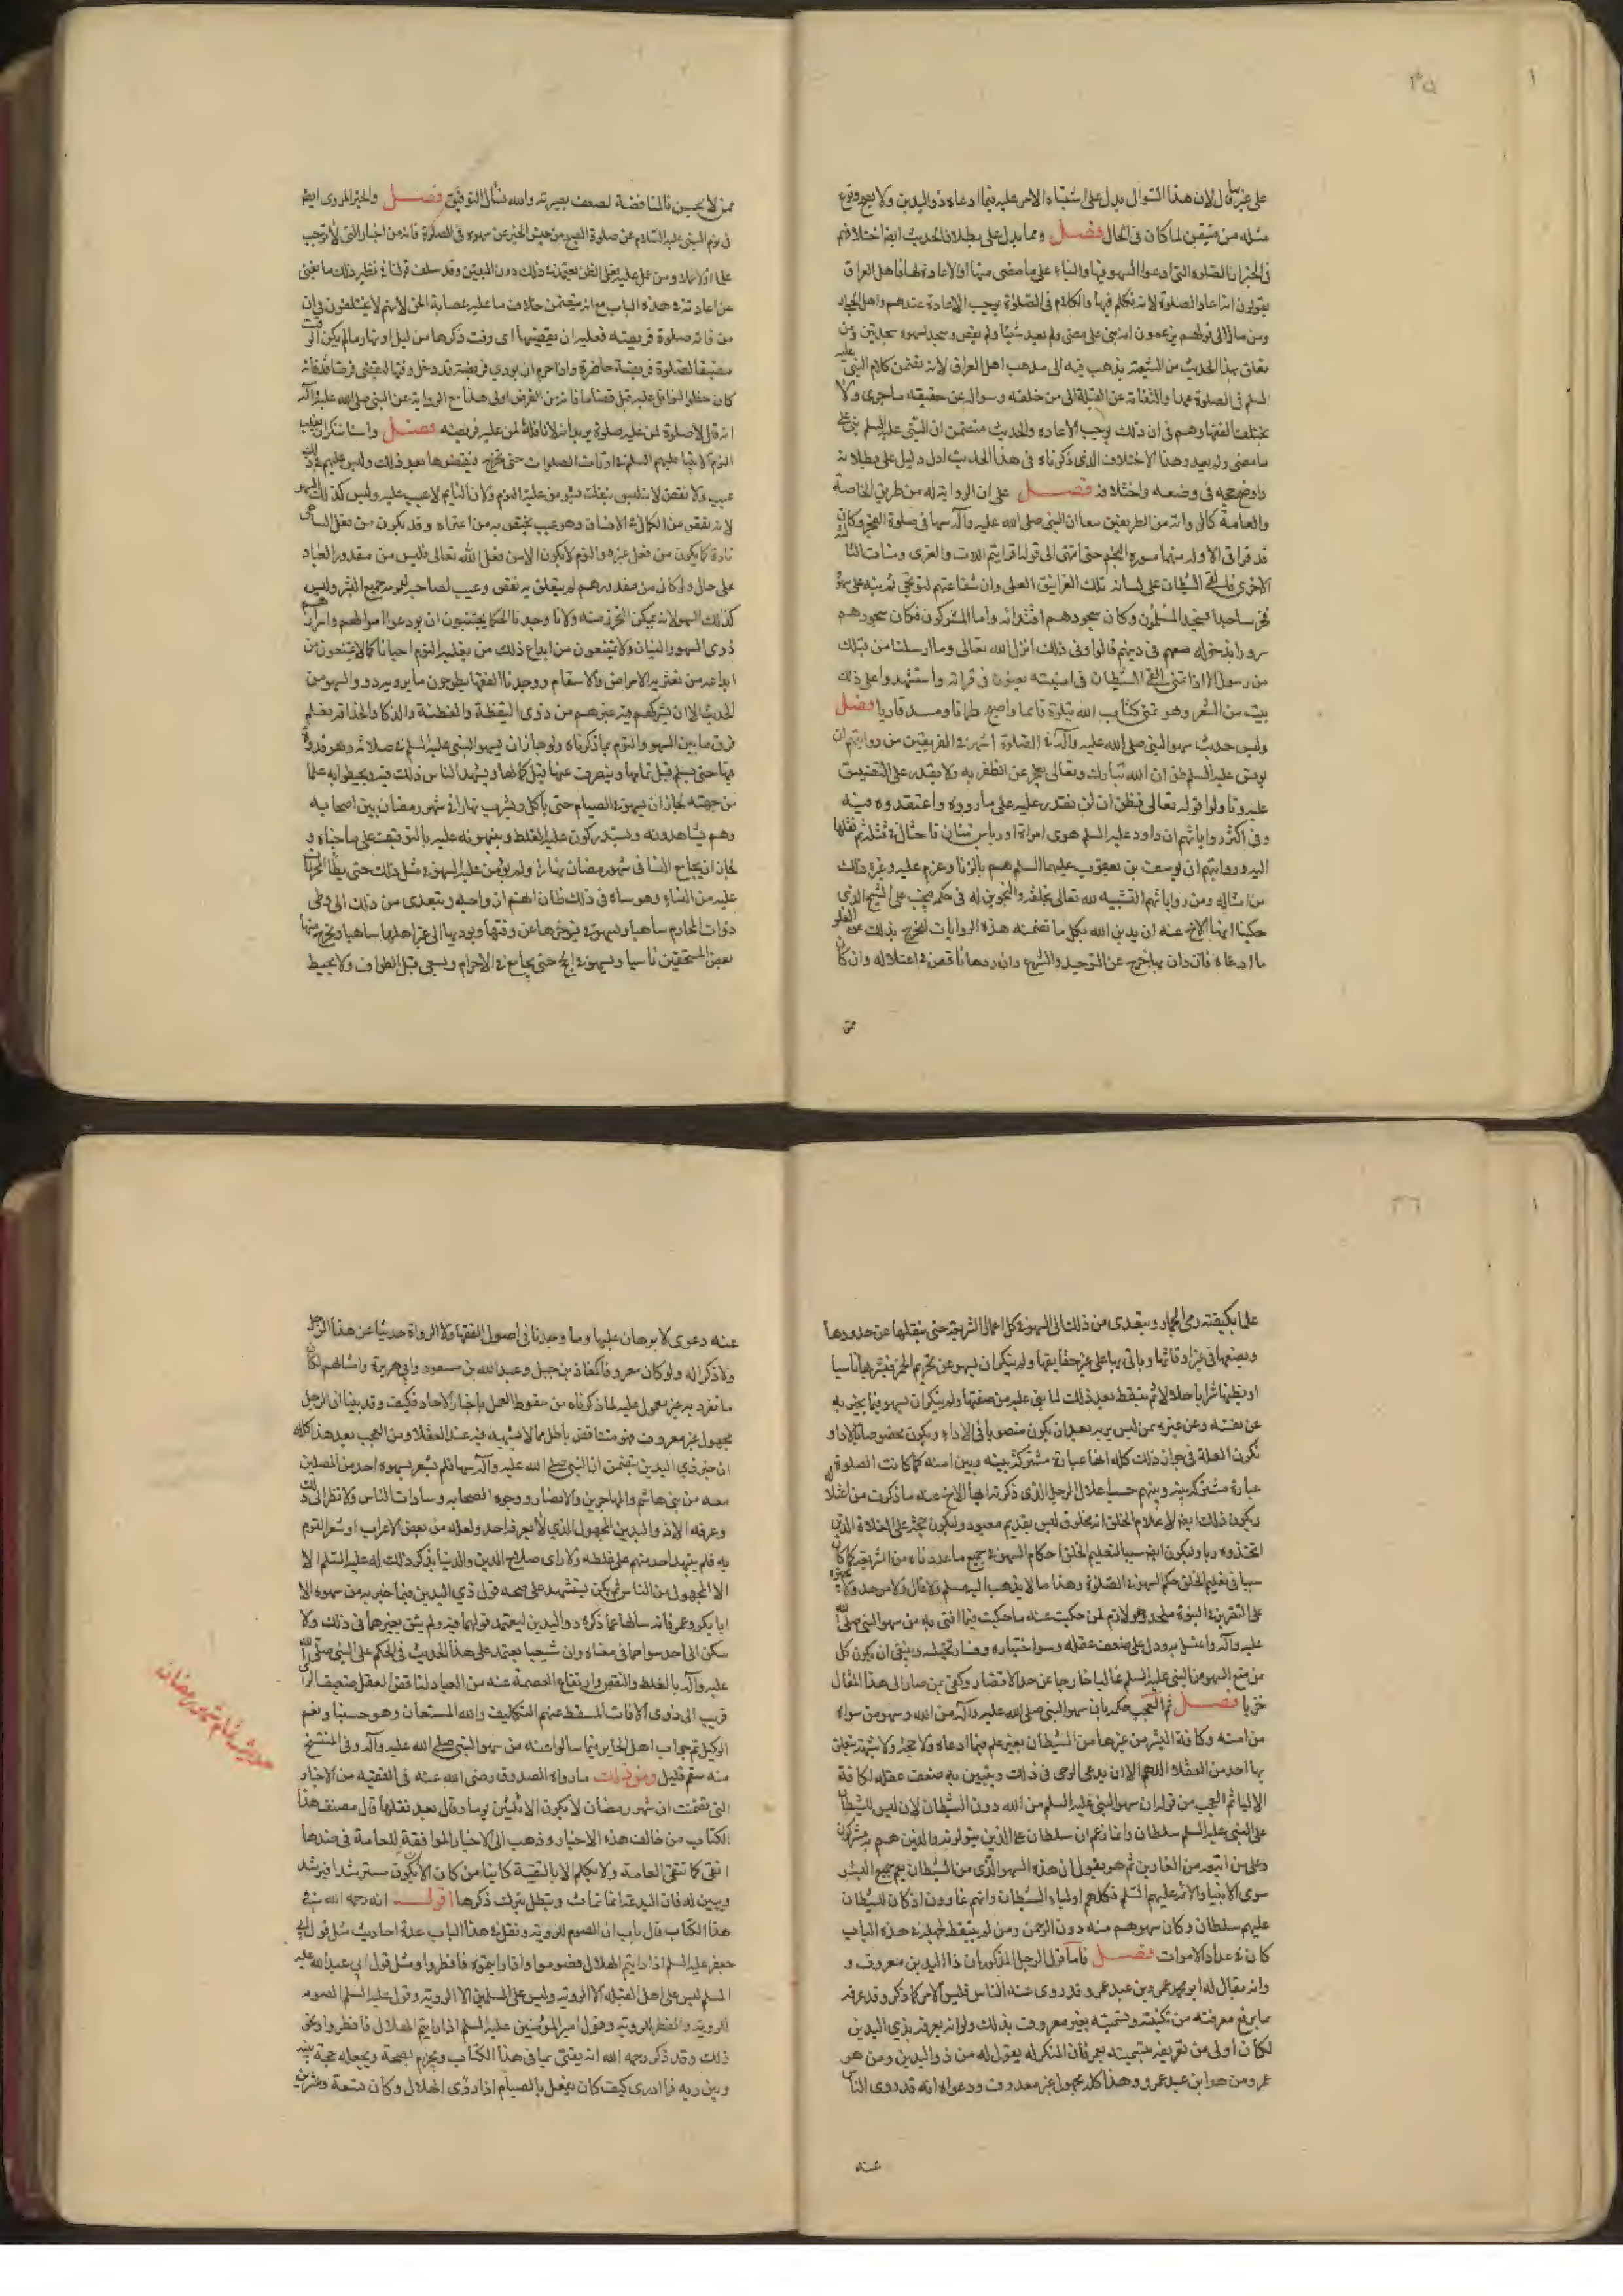 ٣٥
على غير ما قال لان هذا السؤال يدل على اشتباه الامر عليه فيما ادعاه ذو اليدين ولا يصح وقوع
مثله من متيقن لما كان فى الحال فصل ومما يدل على بطلان الحديث ايضا اختلافهم
فى الخبر ان الصلوة التى ادعوا السهو فيها والبناء على ما مضى منها او الاعادة لها فاهل العراق
يقولون انه اعاد الصلوة لانه تكلم فيها والكلام فى الصلوة يوجب الاعادة عندهم واهل الحجاز
ومن مال الى قولهم يزعمون انه بنى على ما مضى ولم يعد شيئا ولم يقض وسجد لسهوه سجدتين ومن
تعلق بهذا الحديث من الشيعة يذهب فيه الى مذهب اهل العراق لانه تضمن كلام النبى عليه
السلم فى الصلوة عمدا والتفاته عن القبلة الى من خلفه وسواله عن حقيقة ما جرى ولا
يختلف الفقها وهم فى ان ذلك يوجب الاعاده والحديث متضمن ان النبى عليه السلم بنى على
ما مضى ولم يعد وهذا الاختلاف الذى ذكرناه فى هذا الحديث ادل دليل على بطلانه
واوضح حجة فى وضعه واختلاقه فصل على ان الرواية له من طريق الخاصة
والعامة كالرواية من الطريقين معا ان النبى صلى الله عليه وآله سها فى صلوة الفجر وكان
قد قرا فى الاوله منهما سورة النجم حتى انتهى الى قوله افرايتم اللات والعزى ومنات الثا
الاخرى فالقى الشيطان على لسانه تلك الغرانيق العلى وان شفاعتهم لترتجى ثم نبه على سهوه
فخر ساجدا فسجد المسلمون وكان سجودهم اقتداء به واما المشركون فكان سجودهم
سرورا بدخوله معهم فى دينهم قالوا وفى ذلك انزل الله تعالى وما ارسلنا من قبلك
من رسول الا اذا تمنى القى الشيطان فى امنيته يعنون فى قراته واستشهدوا على ذلك
بيت من الشعر وهو تمنى كتاب الله يتلوه قائما واصبح ظمآنا ومسد قاريا فصل
وليس حديث سهو النبى صلى الله عليه وآله فى الصلوة اشهر فى الفريقين من روايتهم ان
يونس عليه السلم ظن ان الله تبارك وتعالى يعجز عن الظفر به ولا يقدر على التضييق
عليه وتاولوا قوله تعالى فظن ان لن نقدر عليه على ما رووه واعتقدوه فيه
وفى اكثر رواياتهم ان داود عليه السلم هوى امراة اوريا بن حنان فاحتال فى قتله ثم نقلها
اليه وروايتهم ان يوسف بن يعقوب عليهما السلم هم بالزنا وعزم عليه وغير ذلك
من امثاله ومن رواياتهم التشبيه لله تعالى بخلقه والتجوير له فى حكمه فيجب على الشيخ الذى
حكينا ايها الاخ عنه ان يدين الله بكل ما تضمنته هذه الروايات ليخرج بذلك عن الغلو
ما ادعاه فان دان بها خرج عن التوحيد والشرع وان ردها ناقض فى اعتلاله وان كان
ممن
ممن لا يحسن المناقضة لضعف بصيرته والله نسأل التوفيق فصل والخبر المروى ايضا
فى نوم النبى عليه السلام عن صلوة الصبح من جنس الخبر عن سهوه فى الصلوة فانه من اخبار التى لا توجب
علما ولا عملا ومن عمل عليه فعلى الظن يعتمد فى ذلك دون اليقين وقد سلف قولنا فى نظير ذلك ما يغنى
عن اعادته فى هذا الباب مع انه يتضمن خلاف ما عليه عصابة الحق لانهم لا يختلفون فى ان
من فاته صلوة فريضة فعليه ان يقضيها اى وقت ذكرها من ليل او نهار ما لم يكن الوقت
مضيقا لصلوة فريضة حاضرة واذا حرم ان يودى فريضة قد دخل وقتها ليقضى فرضا قد فاته
كان حظر النوافل عليه قبل قضاء ما فاته من الفرض اولى هذا مع الرواية عن النبى صلى الله عليه وآله
انه قال لا صلوة لمن عليه صلوة يريد انه لا نافلة لمن عليه فريضه فصل ولسنا ننكر ان يغلب
النوم الانبيا عليهم السلم فى اوقات الصلوات حتى تخرج فيقضوها بعد ذلك وليس عليهم فى ذلك
عيب ولا نقص لانه ليس ينفك بشر من غلبة النوم ولان النايم لا عيب عليه وليس كذلك السهو
لانه نقص عن الكمال فى الانسان وهو عيب يختص به من اعتراه وقد يكون من فعل الساهى
تارة كما يكون من فعل غيره والنوم لا يكون الا من فعل الله تعالى فليس من مقدور العباد
على حال ولو كان من مقدورهم لم يتعلق به نقص وعيب لصاحبه لعمومه جميع البشر وليس
كذلك السهو لانه يمكن التحرز منه ولانا وجدنا الحكما يجتنبون ان يودعوا اموالهم واسرارهم
ذوى السهو والنسيان ولا يمتنعون من ايداع ذلك من يغلبه النوم احيانا كما لا يمتنعون من
ايداعه من تعتريه الامراض والاسقام ووجدنا الفقها يطرحون ما يرويه ذوو السهو من
الحديث الا ان يشركهم فيه غيرهم من ذوى اليقظة والفطنة والذكا والحذاقة فعلم
فرق ما بين السهو والنوم بما ذكرناه ولو جاز ان يسهو النبى عليه السلم فى صلاته وهو قدوة
فيها حتى يسلم قبل تمامها وينصرف عنها قبل كمالها ويشهد الناس ذلك فيه ويحيطوا به علما
من جهته لجاز ان يسهو فى الصيام حتى ياكل ويشرب نهارا فى شهر رمضان بين اصحابه
وهم يشاهدونه ويستدركون عليه الغلط وينبهونه عليه بالتوقيف على ما جناه و
لجاز ان يجامع النسا فى شهر رمضان نهارا ولم يؤمن عليه السهو فى مثل ذلك حتى يطأ المحرمات
عليه من النساء وهو ساه فى ذلك ظان انهن ازواجه ويتعدى من ذلك الى وطى
ذوات المحارم ساهيا ويسهو فى الزكوة فيؤخرها عن وقتها ويوديها الى غير اهلها ساهيا ويخرج منها
بعض المستحقين ناسيا ويسهو فى الحج حتى يجامع فى الاحرام ويسعى قبل الطواف ولا يحيط
٣٦
علما بكيفية رمى الجمار ويتعدى من ذلك الى السهو فى كل اعمال الشريعة حتى ينقلها عن حدودها
ويضعها فى غير اوقاتها وياتى بها على غير حقايقها ولم ينكر ان يسهو عن تحريم الخمر فيشربها ناسيا
او يظنها شرابا حلالا ثم يتيقظ بعد ذلك لما بنى عليه من صفتها ولم ينكر ان يسهو فيما يخبر به
عن نفسه وعن غيره ممن ليس بربه بعد ان يكون منصوبا فى الاداء ويكون مخصوصا بالاداو
تكون العلة فى جواز ذلك كله انها عبادة مشتركة بينه وبين امته كما كانت الصلوة
عبادة مشتركة بينه وبينهم حسب اعتلال الرجل الذى ذكرت ايها الاخ عنه ما ذكرت من اعتلا
ويكون ذلك ايضا لاعلام الخلق انه مخلوق ليس بقديم معبود وليكون حجة على الغلاة الذين
اتخذوه ربا وليكون ايضا سببا لتعليم الخلق احكام السهو فى جميع ما عددناه من الشريعة كما كان
سببا فى تعليم الخلق حكم السهو فى الصلوة وهذا ما لا يذهب اليه مسلم ولا غال ولا موحد ولا يجيزه
على التقدير فى النبوة ملحد وهو لازم لمن حكيت عنه ما حكيت فيما افتى به من سهو النبى صلى الله
عليه وآله واعتل به ودل على ضعف عقله وسوء اختياره وفساد تخيله وينبغى ان يكون كل
من منع السهو من النبى عليه السلم غاليا خارجا عن حد الاقتصاد وكفى بمن صار الى هذا المقال
خزيا فصل ثم العجب حكمه بان سهو النبى صلى الله عليه وآله من الله وسهو من سواه
من امته وكافة البشر من غيرها من الشيطان بغير علم فيما ادعاه ولا حجة ولا شبهة يتعلق
بها احد من العقلاء اللهم الا ان يدعى الوحى فى ذلك ويتبين به ضعف عقله لكافة
الالبا ثم العجب من قوله ان سهو النبى عليه السلم من الله دون الشيطان لانه ليس للشيطان
على النبى عليه السلم سلطان وانما زعم ان سلطانه على الذين يتولونه والذين هم به مشركون
وعلى من اتبعه من الغاوين ثم هو يقول ان هذا السهو الذى من الشيطان يعم جميع البشر
سوى الانبيا والائمه عليهم السلم فكلهم اولياء الشيطان وانهم غاوون اذ كان للشيطان
عليهم سلطان وكان سهوهم منه دون الرحمن ومن لم يتيقظ لجهله فى هذه الباب
كان فى عداد الاموات فصل فاما قول الرجل المذكور ان ذا اليدين معروف و
انه يقال له ابو محمد عمير بن عبد عمرو وقد روى عنه الناس فليس الامر كما ذكر وقد عرفه
بما يرفع معرفته من تكنيته وتسميته بغير معروف بذلك ولو انه يعرف بذى اليدين
لكان اولى من تعريفه بتسميته بعمير فان المنكر له يقول له من ذو اليدين ومن هو
عمير ومن هو ابن عبد عمرو وهذا كله مجهول غير معروف ودعواه انه قد روى الناس
عنه
عنه دعوى لا برهان عليها وما وجدنا فى اصول الفقها ولا الرواة حديثا عن هذا الرجل
ولا ذكرا له ولو كان معروفا كمعاذ بن جبل وعبد الله بن مسعود وابى هريرة وامثالهم لكان
ما تفرد به غير معمول عليه لما ذكرناه من سقوط العمل باخبار الاحاد فكيف وقد بينا ان الرجل
مجهول غير معروف فهو متناقض باطل مما لا شبهة فيه عند العقلا ومن العجب بعد هذا كله
ان خبر ذى اليدين يتضمن ان النبى صلى الله عليه وآله سها فلم يشعر بسهوه احد من المصلين
معه من بنى هاشم والمهاجرين والانصار ووجوه الصحابه وسادات الناس ولا نظر الى ذلك
وعرفه الا ذو اليدين المجهول الذى لا يعرفه احد ولعله من بعض الاعراب او شعر القوم
به فلم ينبهه احد منهم على غلطه ولا راى صلاح الدين والدنيا بذكر ذلك له عليه السلم الا
الا المجهول من الناس ثم لم يكن يستشهد على صحة قول ذى اليدين فيما اخبر به من سهوه الا
ابا بكر وعمر فانه سالهما عما ذكره ذو اليدين ليعتمد قولهما فيه ولم يثق بغيرهما فى ذلك ولا
سكن الى احد سواهما فى معناه وان شيعيا يعتمد على هذا الحديث فى الحكم على النبى صلى الله
عليه وآله بالغلط والنقص وارتفاع العصمة عنه من العباد لناقص العقل ضعيف الراى
قريب الى ذوى الافات المسقطة عنهم التكليف والله المستعان وهو حسبنا ونعم
الوكيل تم جواب اهل الحاير فيما سالوا عنه من سهو النبى صلى الله عليه وآله وفى المنتسخ
منه سقم قليل ومن ذلك ما رواه الصدوق رضى الله عنه فى الفقيه من الاخبار
التى تضمنت ان شهر رمضان لا يكون الا ثلثين يوما وقال بعد نقلها قال مصنف هذا
الكتاب من خالف هذه الاخبار وذهب الى الاخبار الموافقة للعامة فى ضدها
اتقى كما تتقى العامة ولا يكلم الا بالتقية كاينا من كان الا ان يكون مسترشدا فيرشد
ويبين له فان البدعة انما تماث وتبطل بترك ذكرها اقول انه رحمه الله فى
هذا الكتاب قال باب ان الصوم للروية ونقل فى هذا الباب عدة احاديث مثل قول ابى
جعفر عليه السلم اذا رايتم الهلال فصوموا واذا رايتموه فافطروا ومثل قول ابى عبد الله عليه
السلم ليس على اهل القبلة الا الروية وليس على المسلمين الا الروية وقوله عليه السلم الصوم
للروية والفطر للروية وقول امير المومنين عليه السلم اذا رايتم الهلال فافطروا ونحو
ذلك وقد ذكر رحمه الله انه يفتى بما فى هذا الكتاب ويجزم بصحة ويجعله حجة بينه
وبين ربه فما ادرى كيف كان يفعل بالصيام اذا رؤى الهلال وكان تسعة وعشرين
شهر رمضان